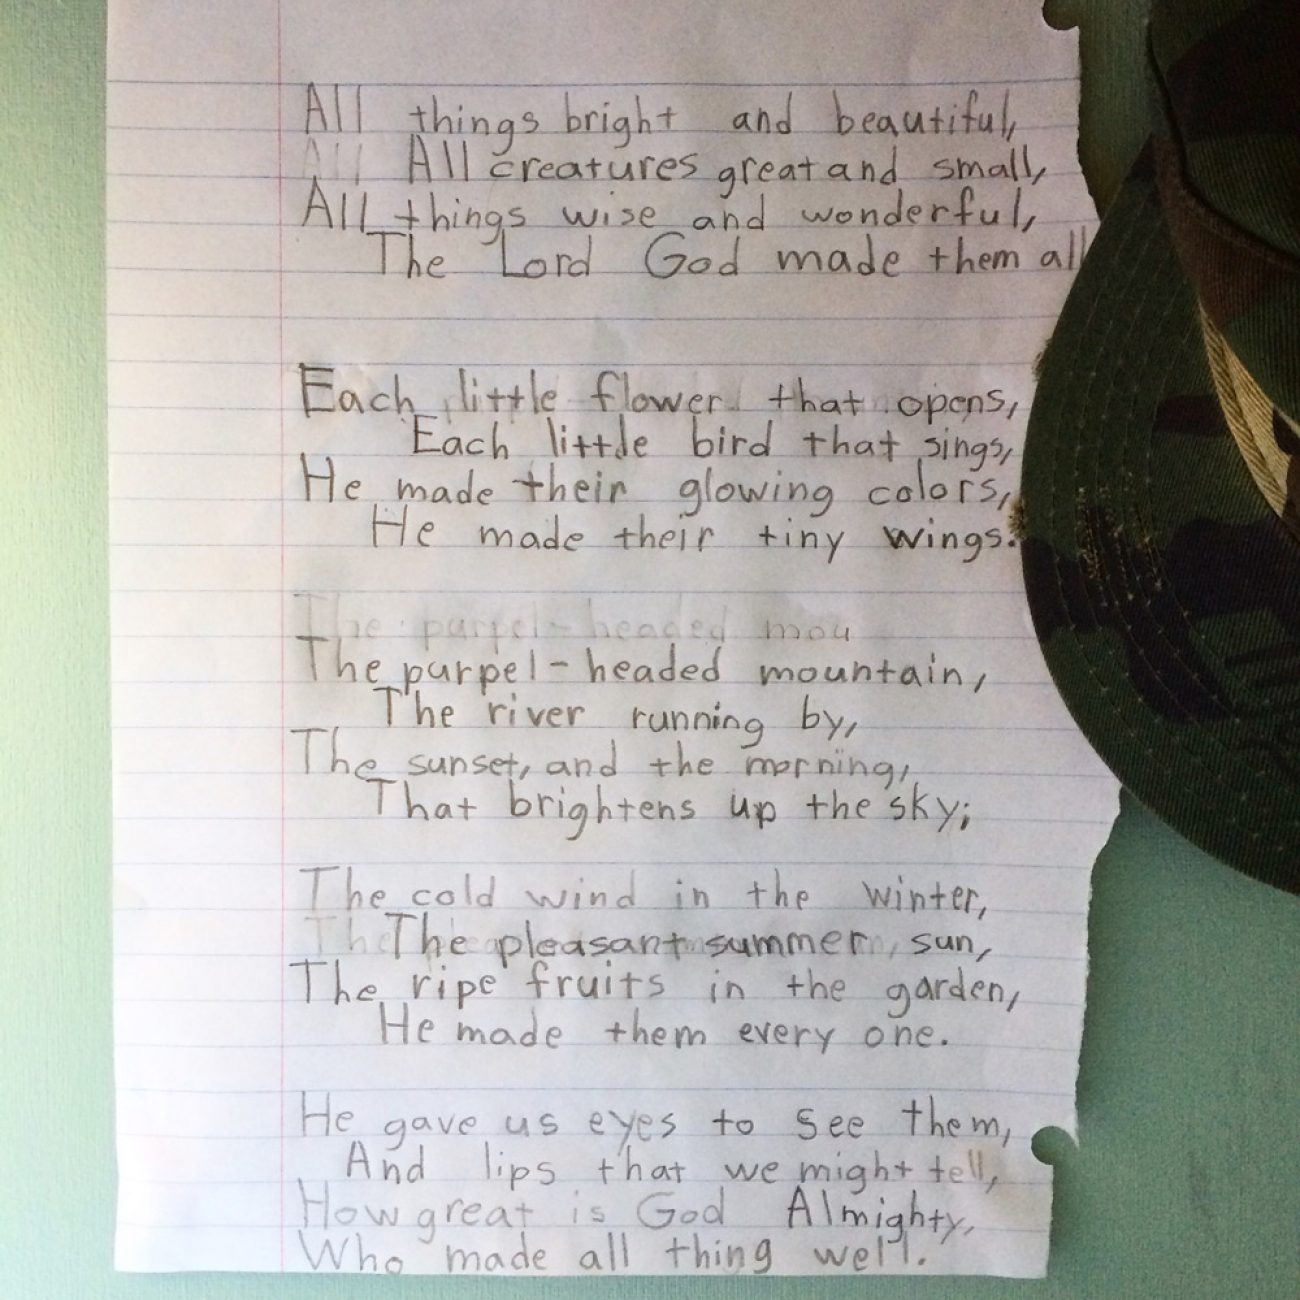 All things bright and beautiful,
All creatures great and small,
All things wise and wonderful,
The Lord God made them all
Each little flower that opens,
Each little bird that sings,
He made their glowing colors,
He made their tiny wings.
The purpel-headed mou
The purpel-headed mountain,
The river running by,
The sunset, and the morning,
That brightens up the sky;
The cold wind in the winter,
The pleasant summer sun,
The ripe fruits in the garden,
He made them every one.
He gave us eyes to see them,
And lips that we might tell,
How great is God Almighty,
Who made all thing well.